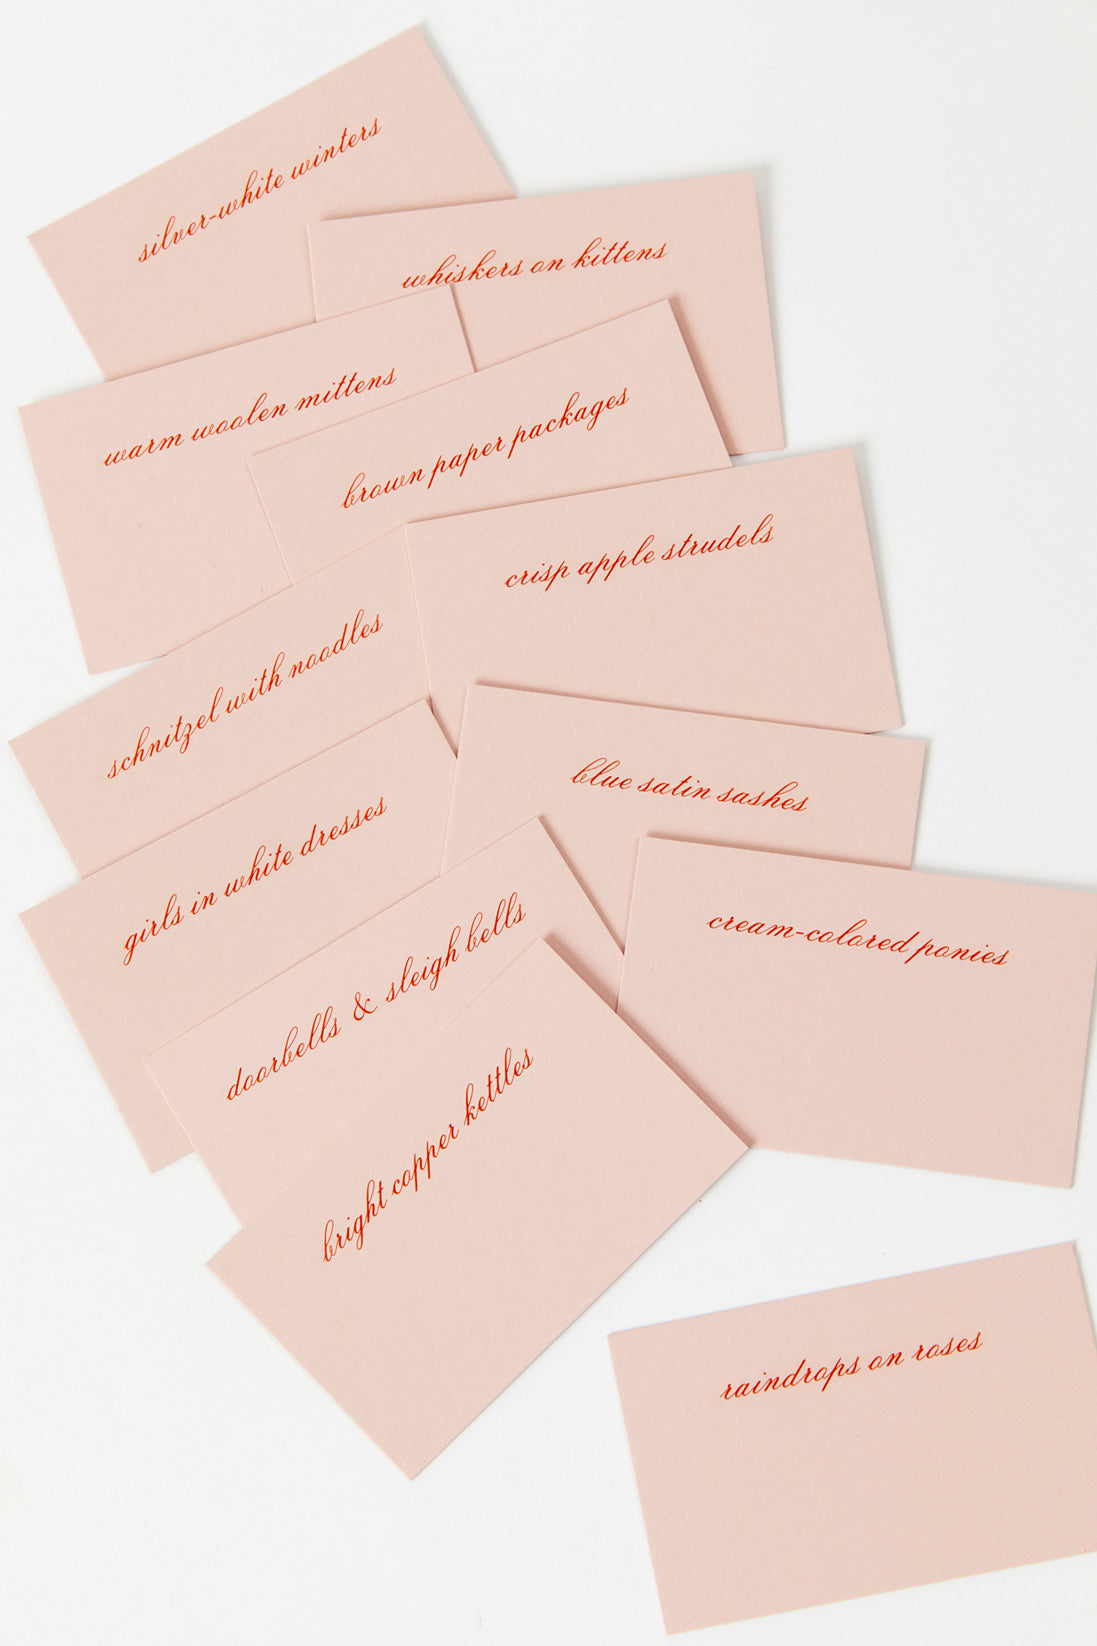 silver-white winters
whiskers on kittens
warm woolen mittens
brown paper packages
crisp apple strudels
schnitzel with noodles
blue satin sashes
girls in white dresses
cream-colored ponies
doorbells & sleigh bells
bright copper kettles
raindrops on roses